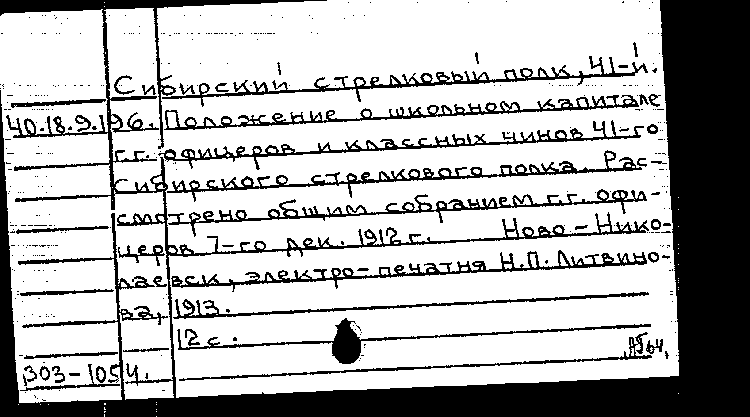 Сибирский стрелковый полк, 41-й.
40.18.9.196. Положение о школьном капитале
г.г. офицеров и классных чинов 41-го
Сибирского стрелкового полка. Рас-
смотрено общим собранием г.г. офи-
церов 7-го дек. 1912 г. Ново-Нико-
лаевск, электро-печатня Н.П. Литвино-
ва, 1913.
12 с.
303-1054.